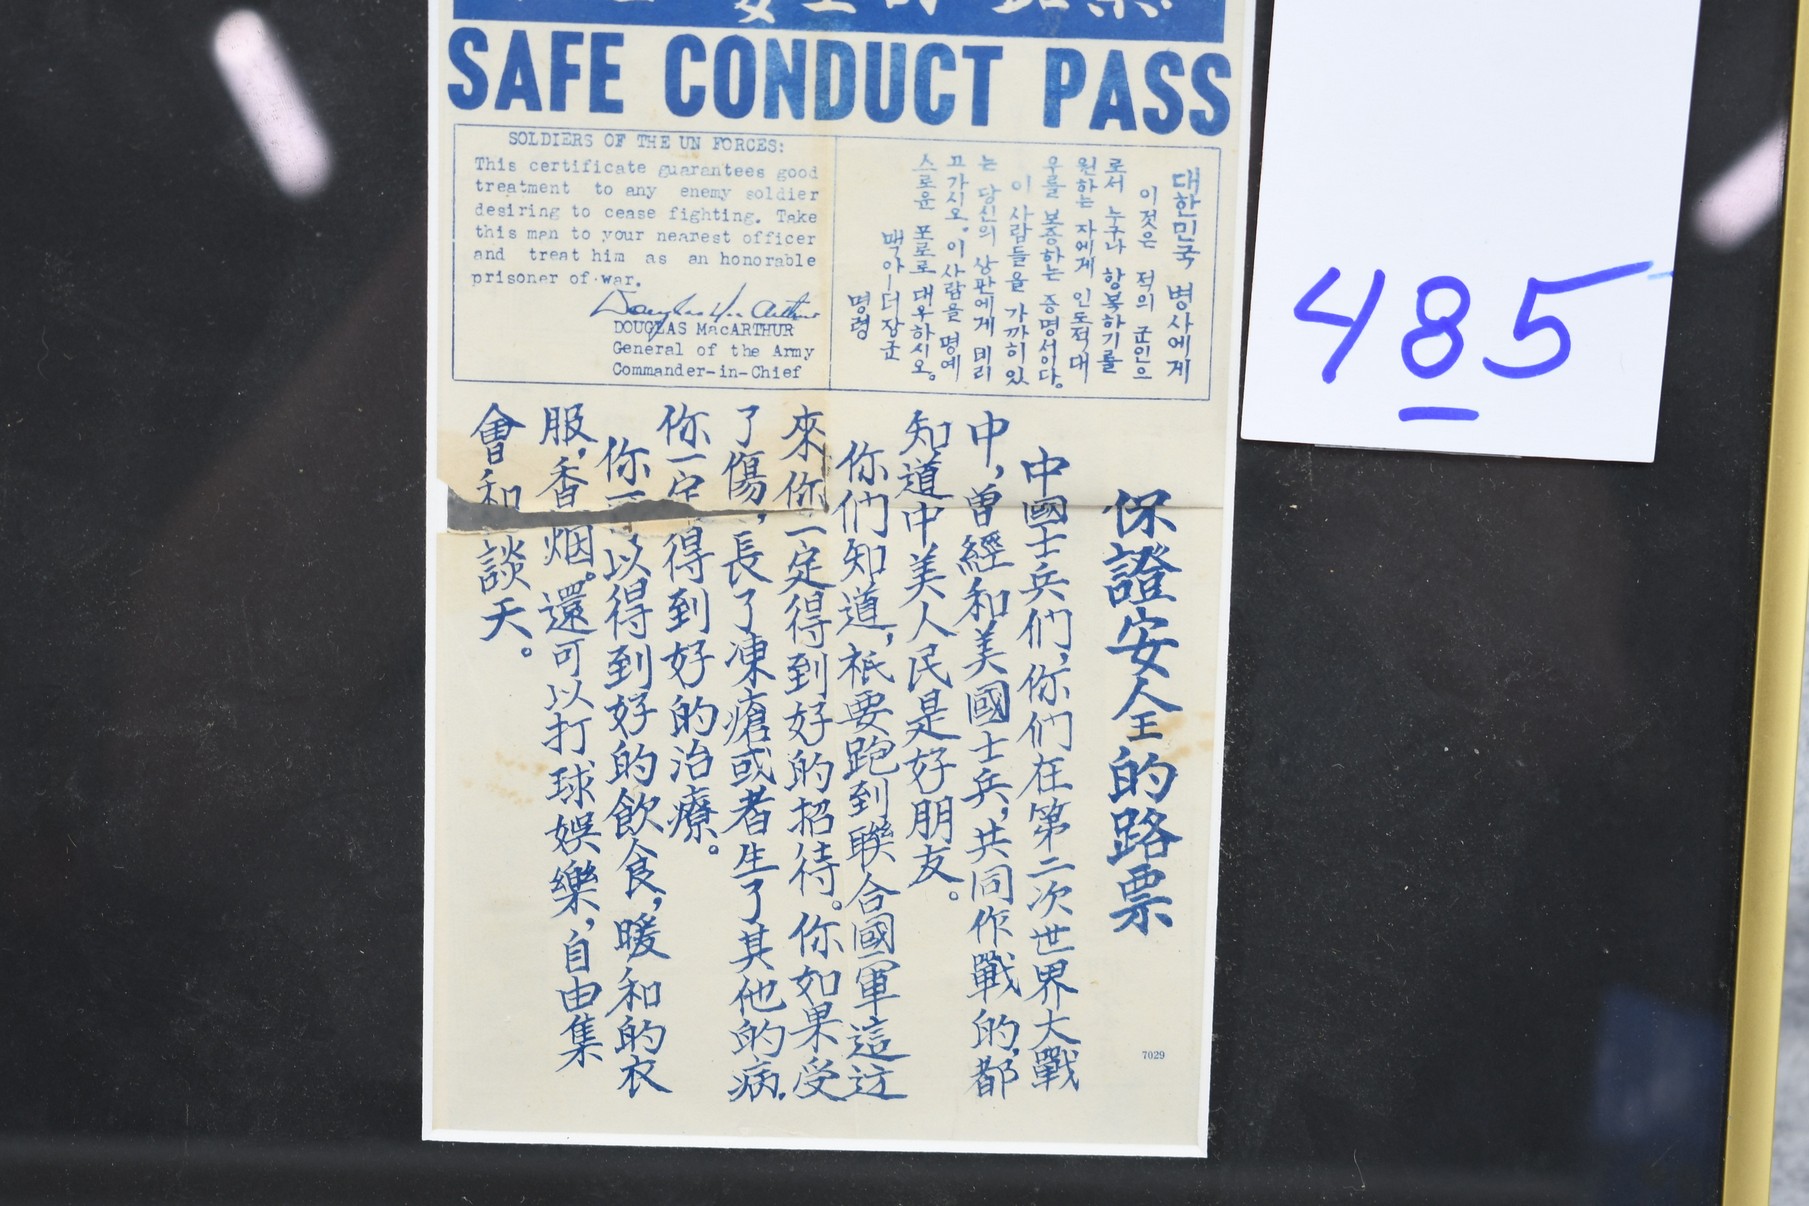 安全的路票
SAFE CONDUCT PASS
SOLDIERS OF THE UN FORCES:
This certificate guarantees good
treatment to any enemy soldier
desiring to cease fighting. Take
this man to your nearest officer
and treat him as an honorable
prisoner of war.
Douglas MacArthur
DOUGLAS MacARTHUR
General of the Army
Commander-in-Chief
대한민국 병사에게
이것은 적의 군인으
로서 누구나 항복하기를
원하는 자에게 인도적 대
우를 보증하는 증명서이다.
이 사람들을 가까히 있
는 당신의 상관에게 데리
고 가시오. 이 사람을 명예
스로운 포로로 대우하시오.
맥아더 장군
명령
485
保證安全的路票
中國士兵們,你們在第二次世界大戰
中,曾經和美國士兵,共同作戰的,都
知道中美人民是好朋友。
你們知道,祇要跑到聯合國軍這边
來你一定得到好的招待。你如果受
了傷,長了凍瘡或者生了其他的病.
你一定得到好的治療。
你可以得到好的飲食,暖和的衣
服,香烟。還可以打球娛樂,自由集
會和談天。
7029